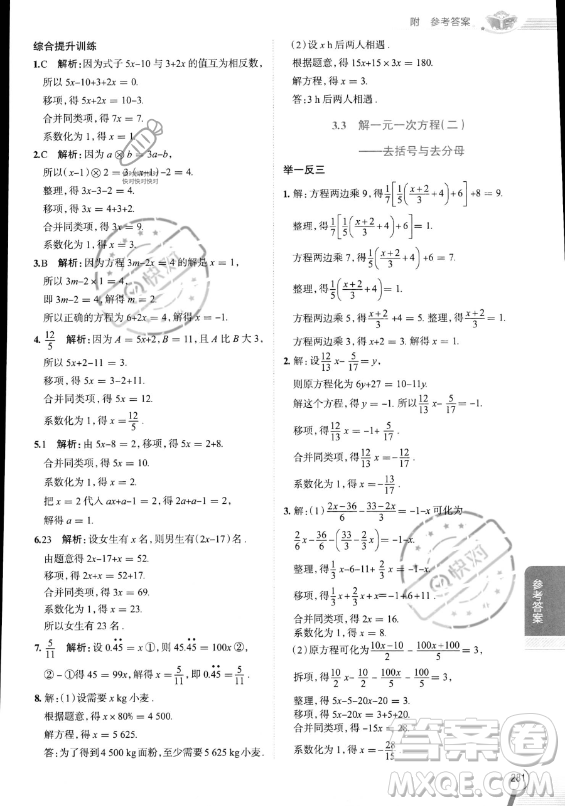 附 参考答案
综合提升训练
1.C 解析:因为式子 5x-10 与 3+2x 的值互为相反数,
所以 5x-10+3+2x = 0.
移项,得 5x+2x = 10-3.
合并同类项,得 7x = 7.
系数化为 1,得 x = 1.
2.C 解析:因为 a ⊗ b = 3a-b,
所以(x-1)⊗2 = -2 = 4.
整理,得 3x-3-2 = 4.
移项,得 3x = 4+3+2.
合并同类项,得 3x = 9.
系数化为 1,得 x = 3.
3.B 解析:因为方程 3m-2x = 4 的解是 x = 1,
所以 3m-2×1 = 4,
即 3m-2 = 4,解得 m = 2.
所以正确的方程为 6+2x = 4,解得 x = -1.
4. 12/5 解析:因为 A = 5x+2,B = 11,且 A 比 B 大 3,
所以 5x+2-11 = 3.
移项,得 5x = 3-2+11.
合并同类项,得 5x = 12.
系数化为 1,得 x = 12/5.
5.1 解析:由 5x-8 = 2,移项,得 5x = 2+8.
合并同类项,得 5x = 10.
系数化为 1,得 x = 2.
把 x = 2 代入 ax+a-1 = 2,得 2a+a-1 = 2.
解得 a = 1.
6.23 解析:设女生有 x 名,则男生有(2x-17)名.
由题意得 2x-17+x = 52.
移项,得 2x+x = 52+17.
合并同类项,得 3x = 69.
系数化为 1,得 x = 23.
所以女生有 23 名.
7. 5/11 解析:设 0.4̇5̇ = x ①,则 45.4̇5̇ = 100x ②,
②-①得 45 = 99x,解得 x = 5/11,即 0.4̇5̇ = 5/11.
8.解:(1)设需要 x kg 小麦.
根据题意,得 x × 80% = 4 500.
解方程,得 x = 5 625.
答:为了得到 4 500 kg 面粉,至少需要 5 625 kg 小麦.
(2)设 x h 后两人相遇.
根据题意,得 15x+15×3x = 180.
解方程,得 x = 3.
答:3 h 后两人相遇.
3.3 解一元一次方程(二)
——去括号与去分母
举一反三
1.解:方程两边乘 9,得 1/7[1/5((x+2)/3+4)+6]+8 = 9.
整理,得 1/7[1/5((x+2)/3+4)+6] = 1.
方程两边乘 7,得 1/5((x+2)/3+4)+6 = 7.
整理,得 1/5((x+2)/3+4) = 1.
方程两边乘 5,得 (x+2)/3+4 = 5.
整理,得 (x+2)/3 = 1.
方程两边乘 3,得 x+2 = 3,解得 x = 1.
2.解:设 12/13 x - 5/17 = y,
则原方程化为 6y+27 = 10-11y.
解方程,得 y = -1. 所以 12/13 x - 5/17 = -1.
移项,得 12/13 x = -1+ 5/17.
合并同类项,得 12/13 x = -12/17.
系数化为 1,得 x = -13/17.
3.解:(1) (2x-36)/6 - (33-2x)/3 = -1-x 可化为
2/6 x - 36/6 - (33/3 - 2/3 x) = -1-x.
整理,得 1/3 x-6-11+ 2/3 x = -1-x.
移项,得 1/3 x+ 2/3 x+x = -1+6+11.
合并同类项,得 2x = 16.
系数化为 1,得 x = 8.
(2)原方程可化为 (10x-10)/2 - = 3,
拆项,得 10/2 x - 10/2 - = 3.
整理,得
移项,得 5x-20x = 3+5+20.
合并同类项,得 -15x = 28.
系数化为 1,得 x = -28
参考答案
快对
快对